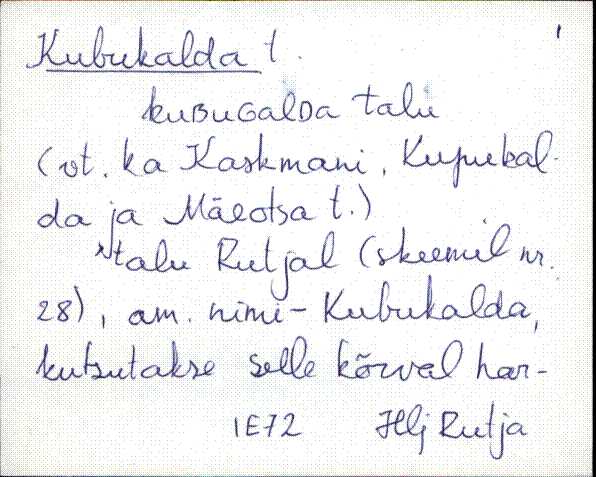 1
Kubukalda t.
kuBuGalDa talu
(vt. ka Kaskmani, Kupukal-
da ja Mäeotsa t.)
talu Rutjal (skeemil nr.
28), am. nimi - Kubukalda,
kutsutakse selle kõrval har-
1E72 Hlj Rutja